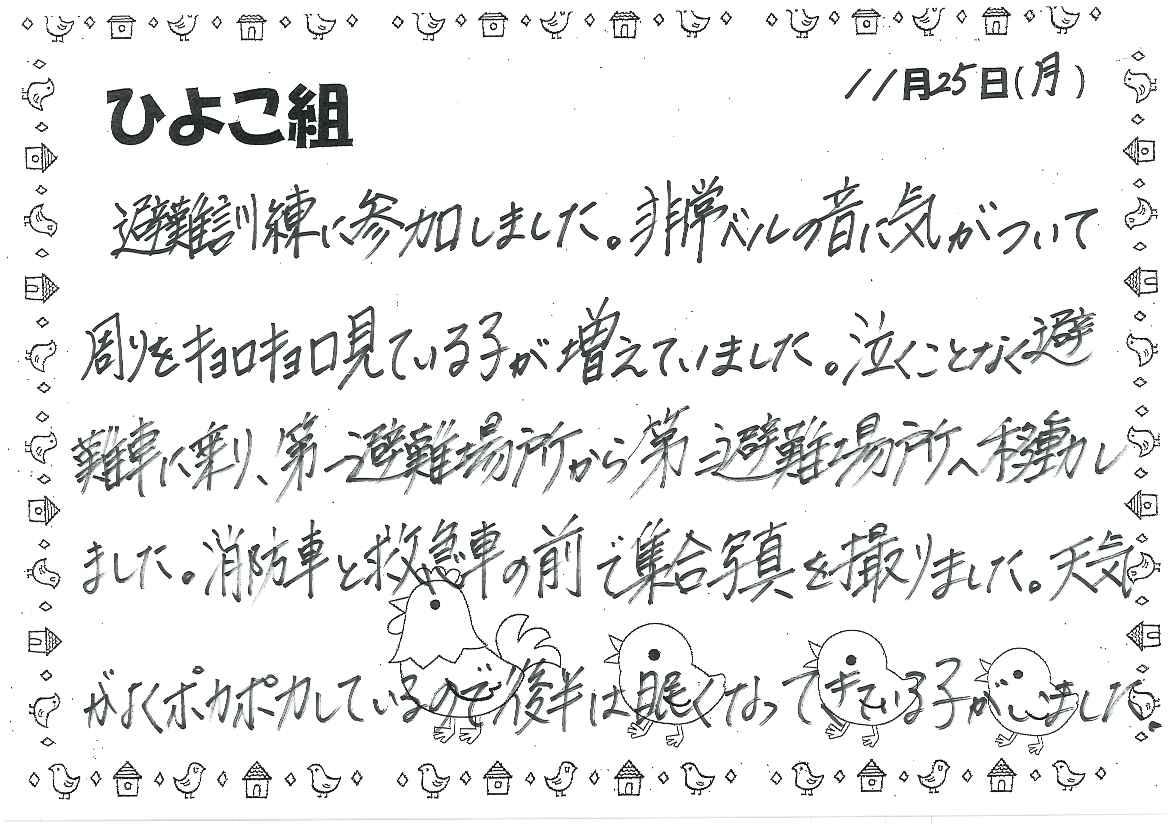 11月25日(月)
ひよこ組
避難訓練に参加しました。非常ベルの音に気がついて
周りをキョロキョロ見ている子が増えていました。泣くことなく避
難車に乗り、第一避難場所から第二避難場所へ移動し
ました。消防車と救急車の前で集合写真を撮りました。天気
がよくポカポカしているので後半は眠くなってきている子がいました。